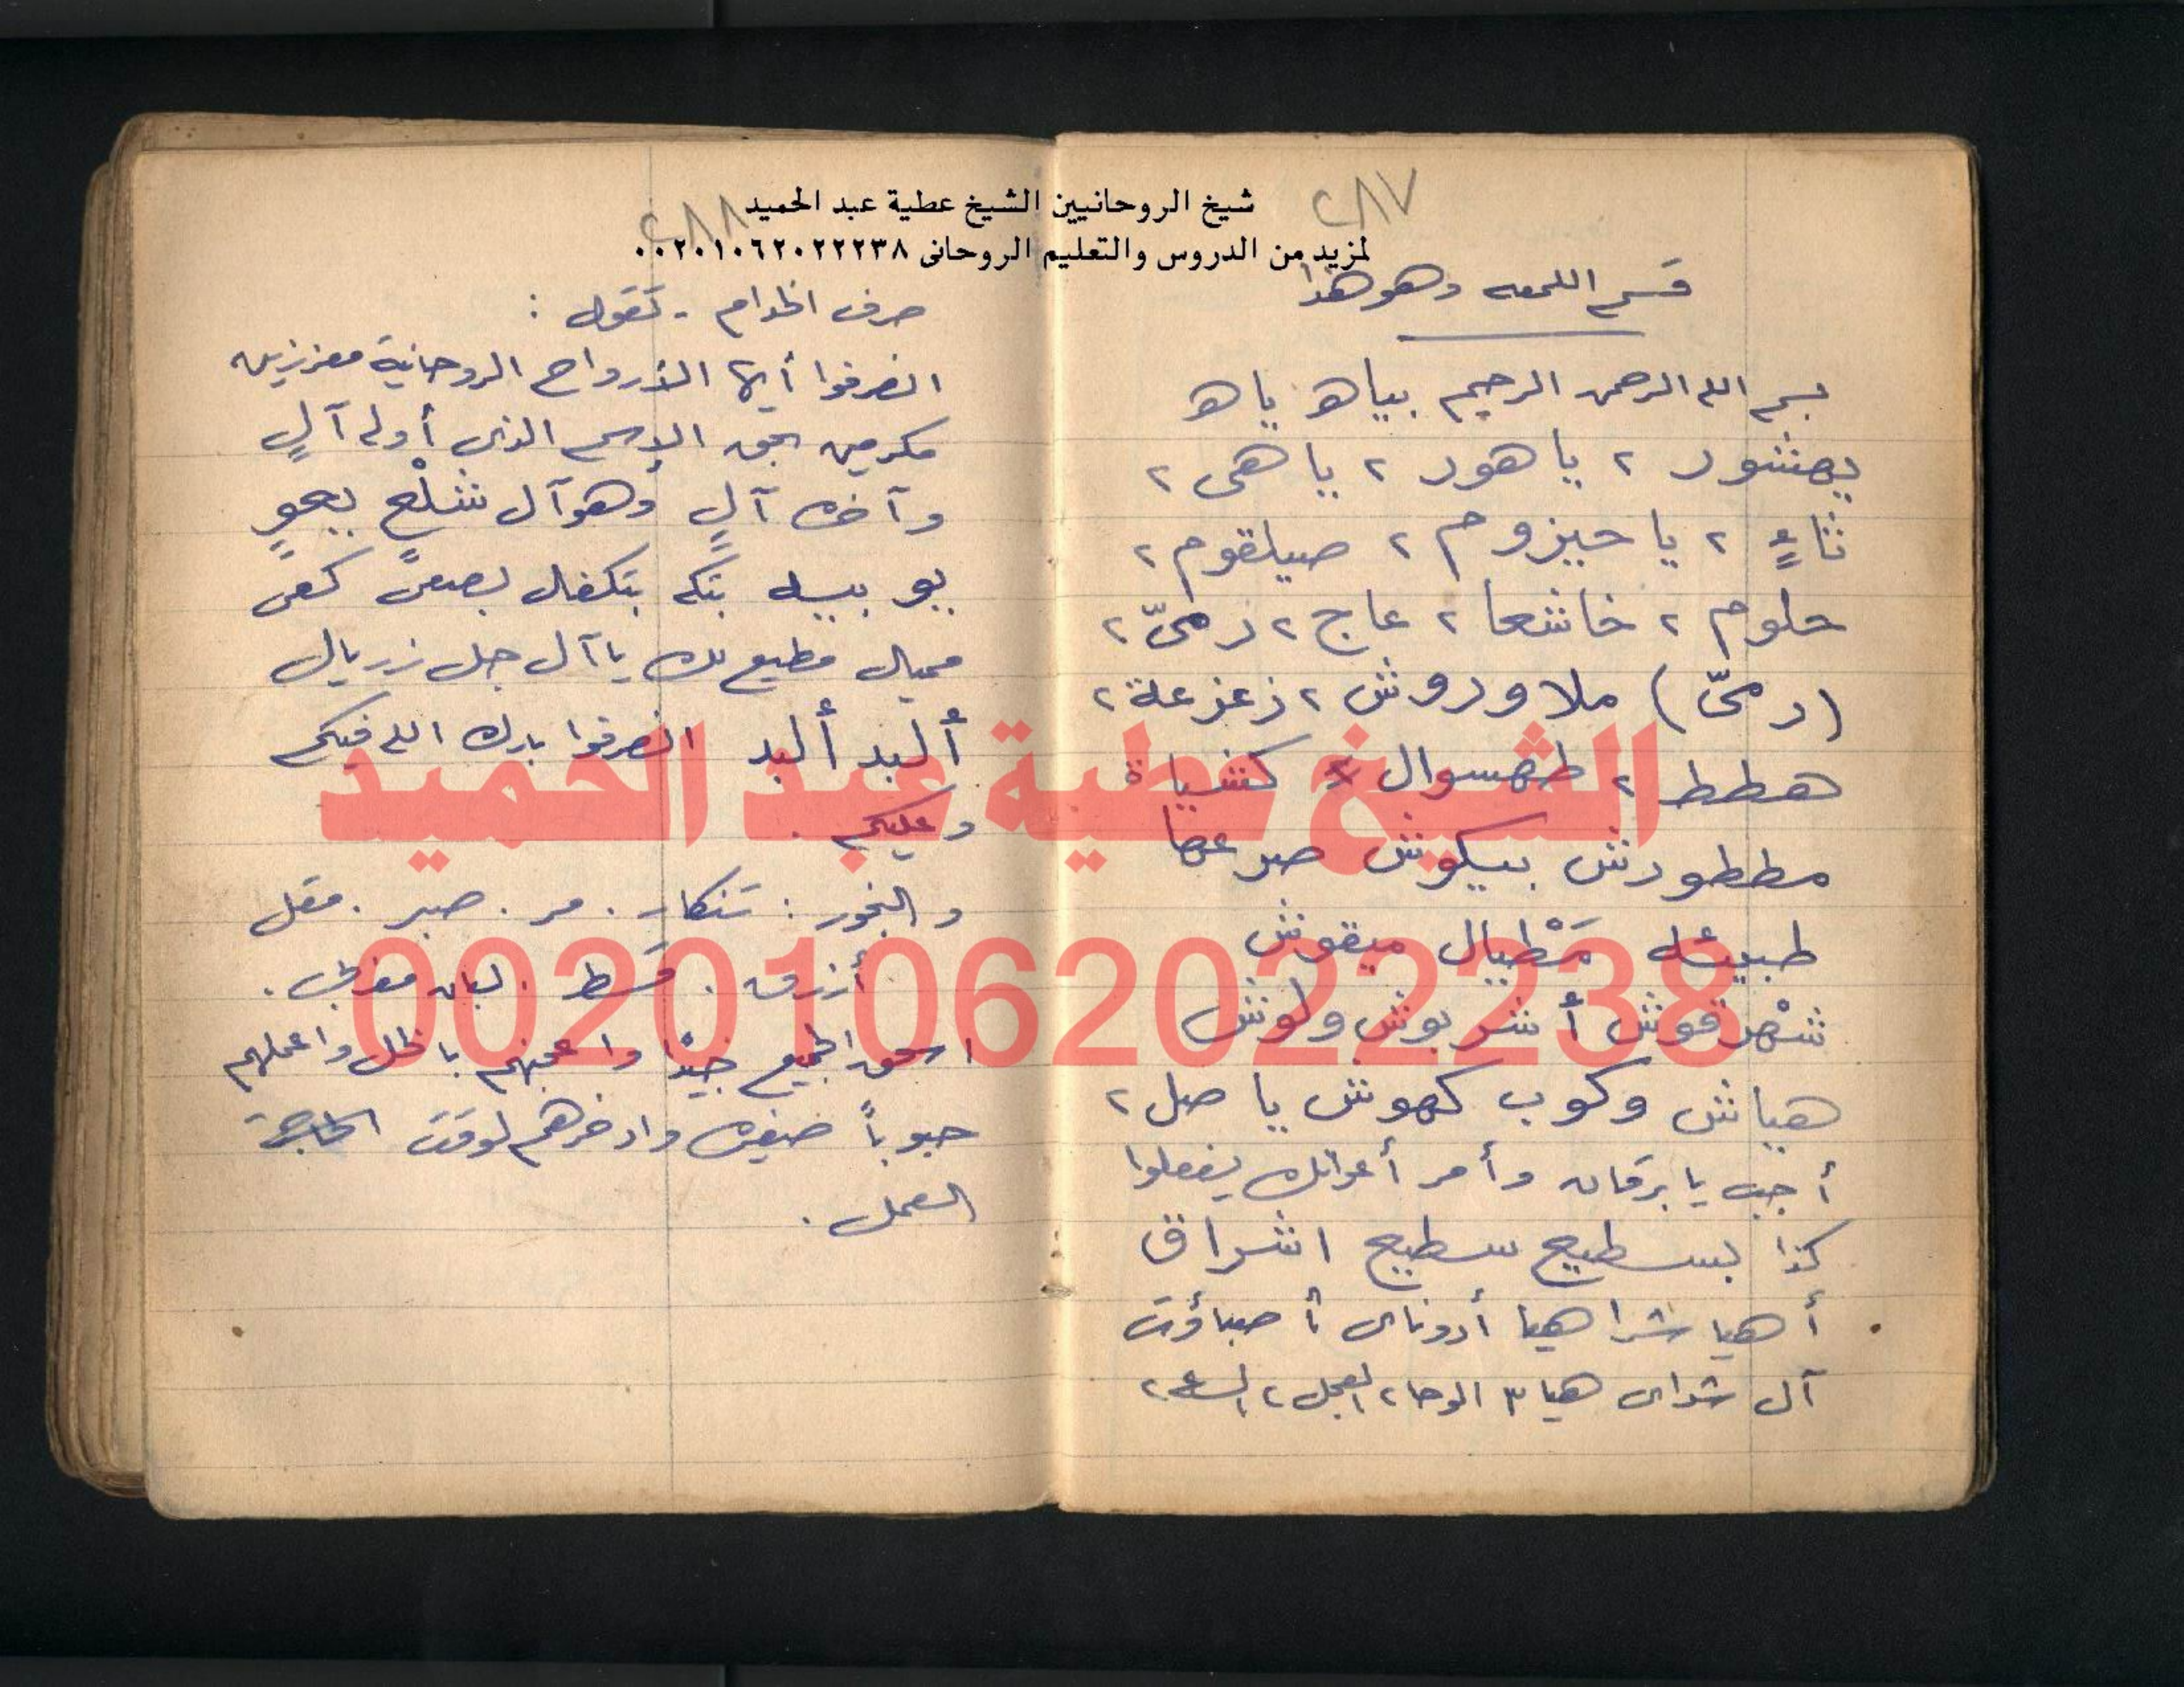 شيخ الروحانيين الشيخ عطية عبد الحميد
لمزيد من الدروس والتعليم الروحانى ٠٠٢٠١٠٦٢٠٢٢٢٣٨
٢٨٧
قسم اللمعه وهو هذا
بسم الله الرحمن الرحيم بياه ياه
يهشور ٢ ياهور ٢ ياهى ٢
ثاءٍ ٢ يا حيزوم ٢ صيلقوم ٢
حلوم ٢ خاشعا ٢ عاج ٢ رمحىّ ٢
(رمحىّ) ملاوروش ٢ زعزعلة ٢
هطط ٢ طهسوال كشياة
مططورش بيكوش صرعها
طبيئله مَهْطيال ميقوش
شهرقوش أشربوش ولوش
هياش وكوب كهوش يا صل ٢
أجب يا برقان وأمر أعوانك يفعلوا
كذا بسطيح سطيح اشراق
أهيا شراهيا أدوناى أصباؤت
آل شداى هيا ٣ الوحا ٢ العجل ٢ الساعه ٢
٢٨٨
صرف الخدام - تقول :
انصرفوا أيها الأرواح الروحانية معززين
مكرمين بحق الإسم الذى أوله آلٍ
وآخره آلٍ وهو آل شلْعٍ يعوٍ
يوبيه بتكه بتكفال بصعىٍ كعى
مميال مطيع لك يا آل جل زريال
ألبد ألبد انصرفوا بارك الله فيكم
وعليكم .
والبخور : تنكار . مر . صبر . مقل
أزرق . قسط . لبان مغربى .
اسحق الجميع جيدًا واعجنهم بالخل واعملهم
حبوباً صغيره وادخرهم لوقت الحاجة
العمل .
الشيخ عطية عبد الحميد
00201062022238